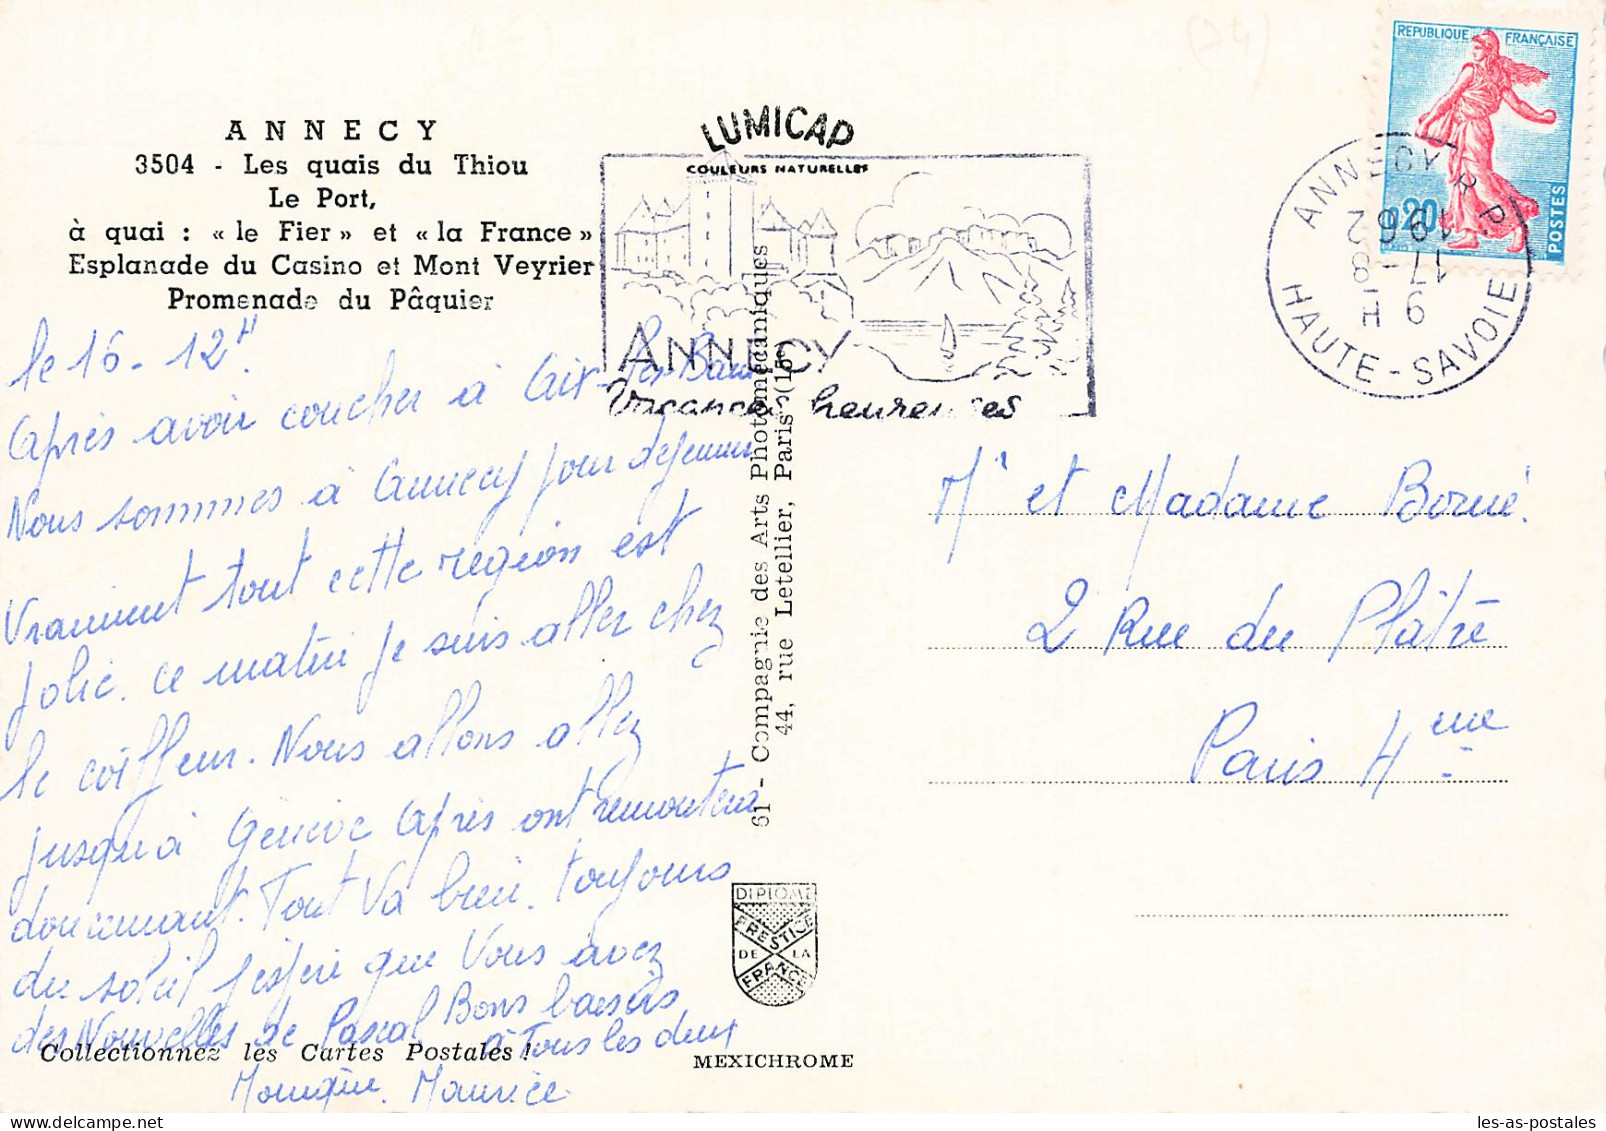 ANNECY
3504 - Les quais du Thiou
Le Port,
à quai : « le Fier » et « la France »
Esplanade du Casino et Mont Veyrier
Promenade du Pâquier
LUMICAP
COULEURS NATURELLES
ANNECY
Vacances heureuses
REPUBLIQUE FRANÇAISE
0,20
POSTES
ANNECY R.P.
HAUTE-SAVOIE
6 H
17-8
1962
le 16 - 12H.
Après avoir coucher à Aix-les-Bains
Nous sommes à Annecy pour dejeuner
Vraiment tout cette region est
jolie. ce matin je suis aller chez
le coiffeur. Nous allons allez
jusqu'à Génève Après ont remontera
doucement. Tout Va bien. toujours
du soleil j'espère que Vous avez
des Nouvelles de Pascal Bons baisers
à Tous les deux
Maurice
Mr et Madame Borné.
2 Rue du Plâtre
Paris 4eme
61 - Compagnie des Arts Photomécaniques
44, rue Letellier, Paris (15e
DIPLOME
PRESTIGE
DE LA
FRANCE
Collectionnez les Cartes Postales !
MEXICHROME
les-as-postales